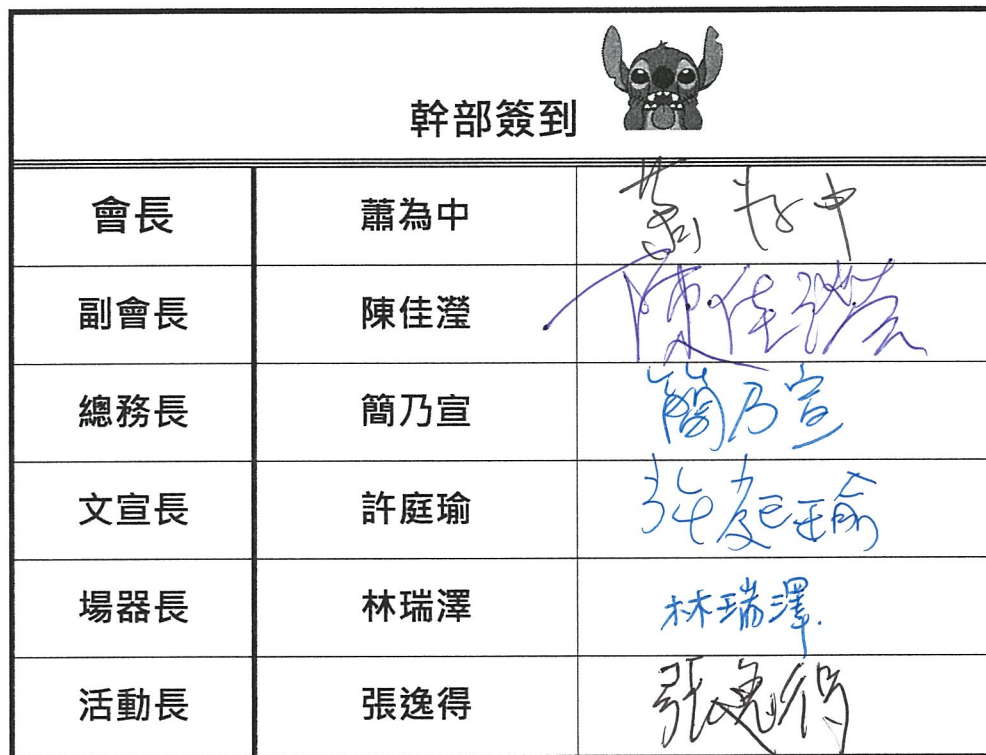 幹部簽到
會長 蕭為中 蕭为中
副會長 陳佳瀅 陳佳瀅
總務長 簡乃宣 簡乃宣
文宣長 許庭瑜 許庭瑜
場器長 林瑞澤 林瑞澤.
活動長 張逸得 張逸得